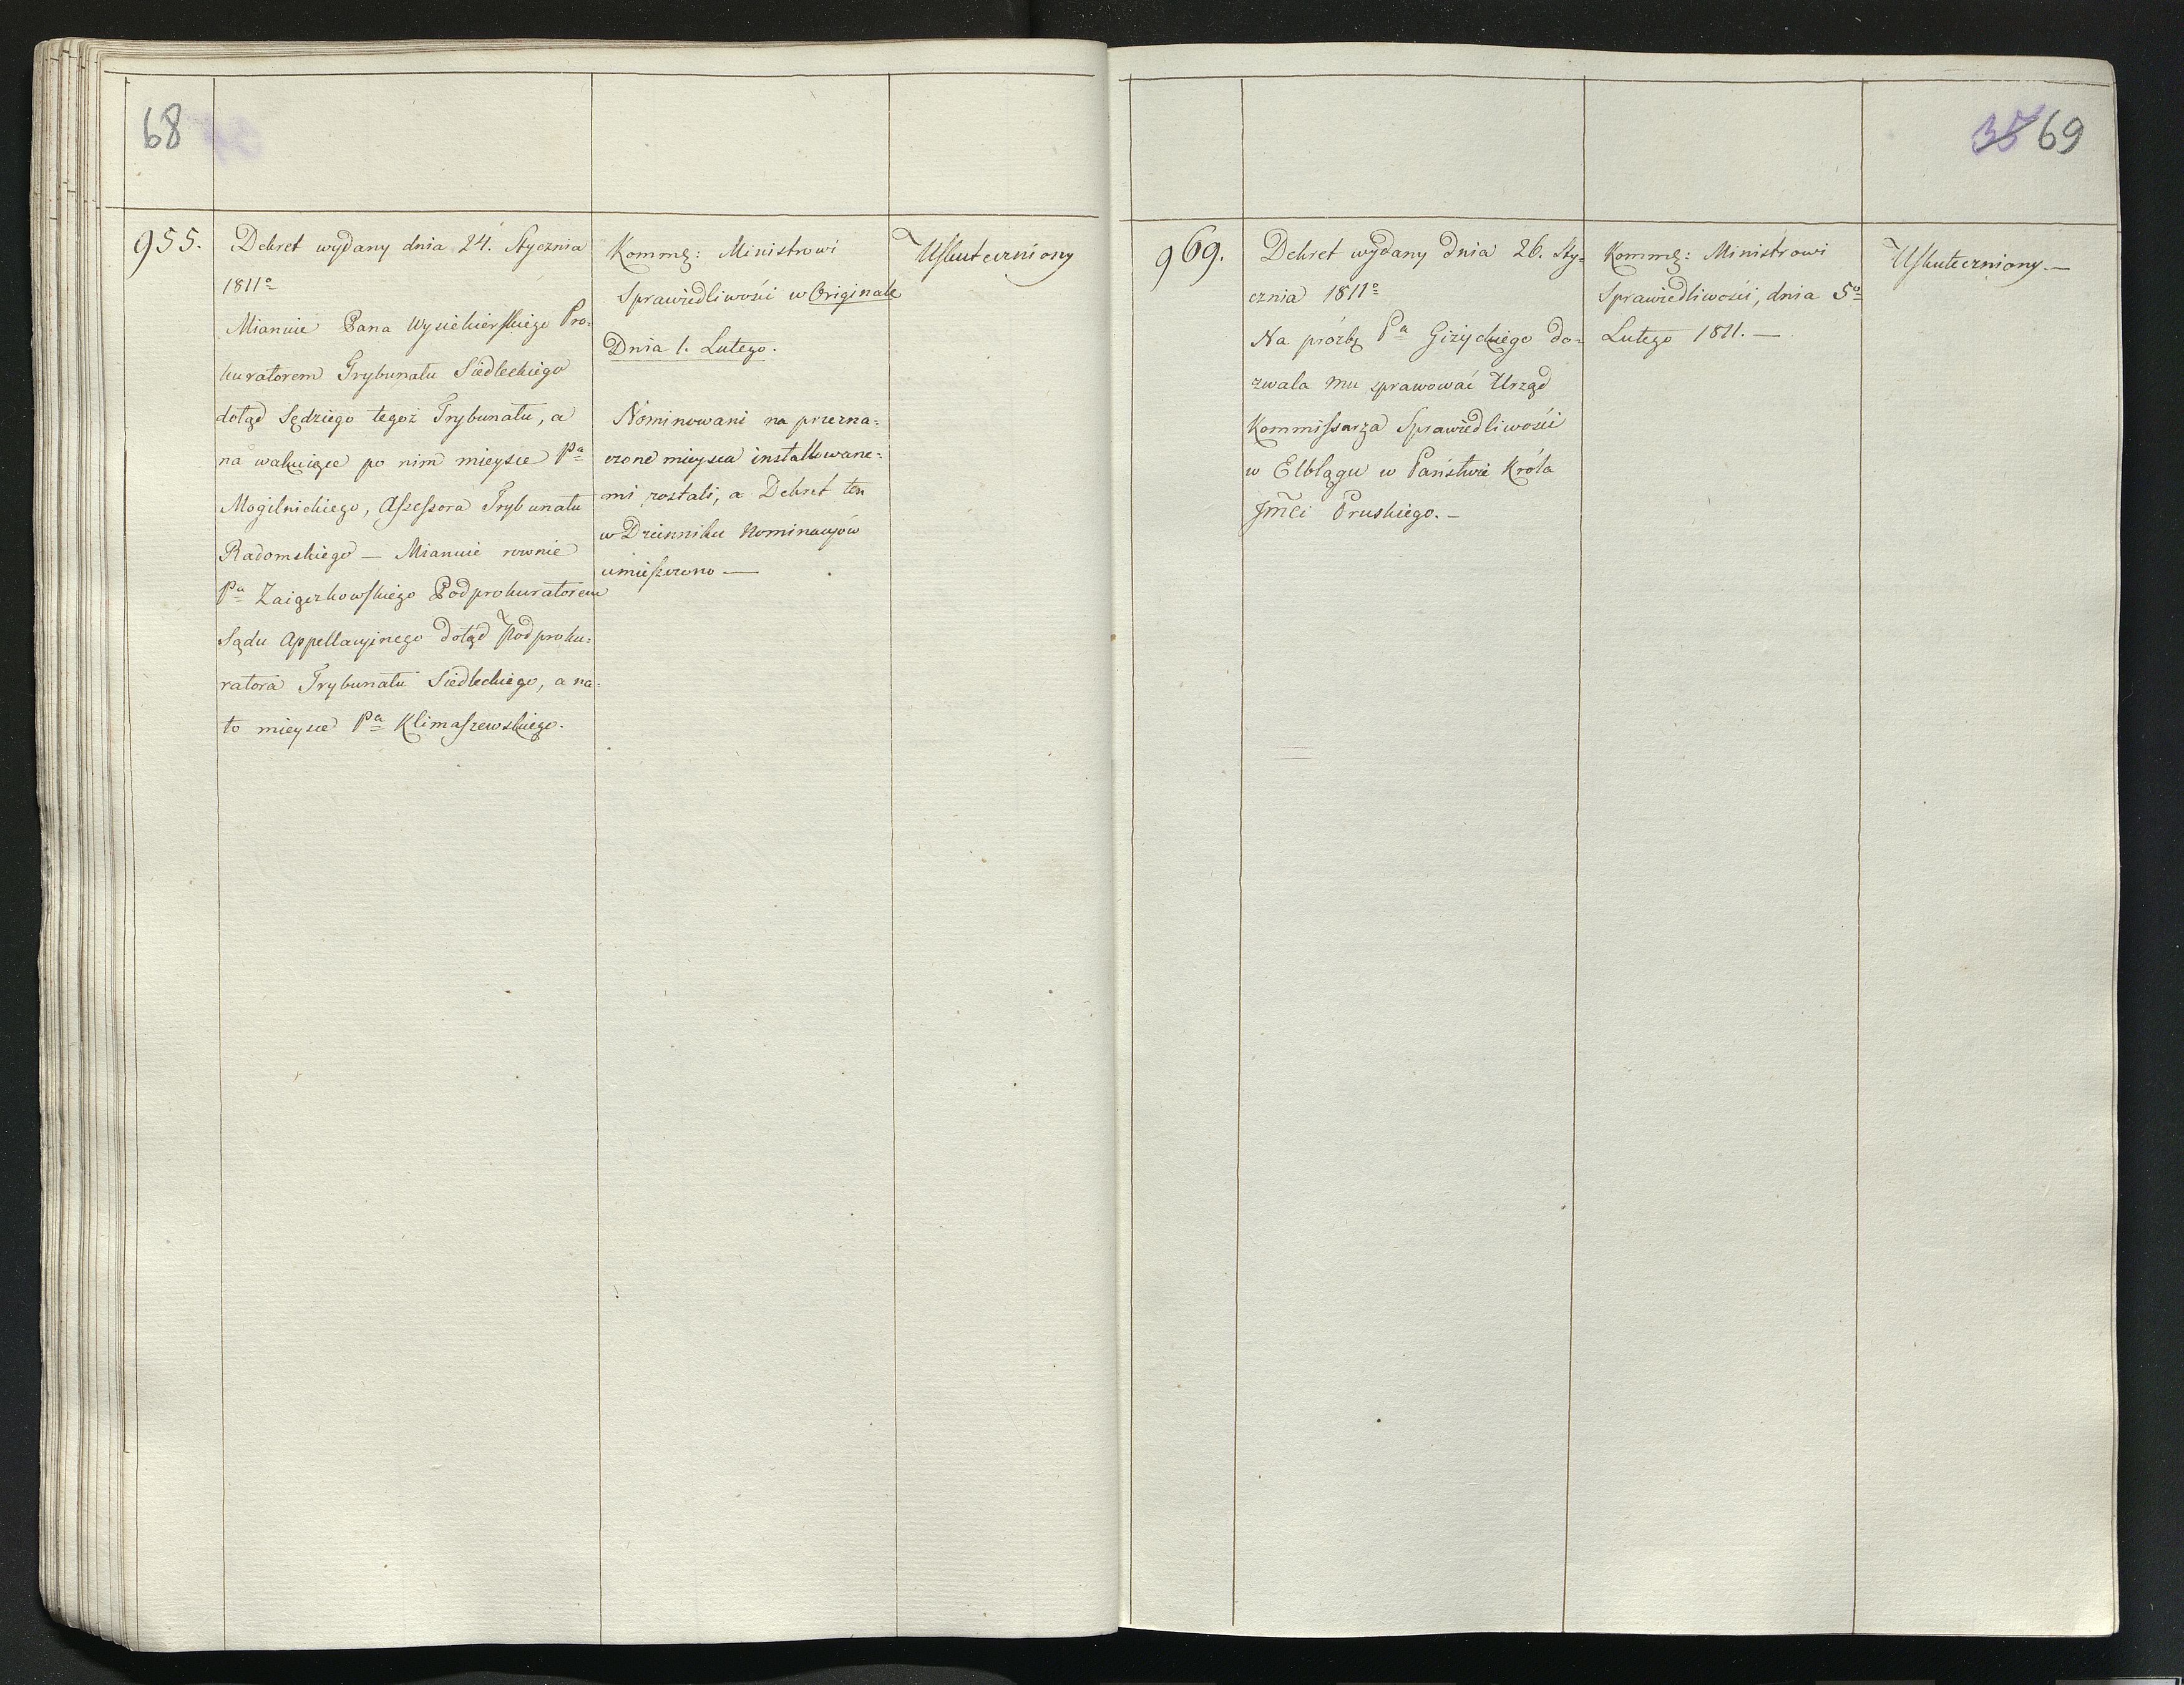 68
955.
Dekret wydany dnia 24. Stycznia
1811º
Mianuie Pana Wysiekierskiego Pro-
kuratorem Trybunału Siedleckiego
dotąd Sędziego tegoż Trybunału, a
na wakuiące po nim mieysce Pª
Mogilnickiego, Assessora Trybunału
Radomskiego — Mianuie rownie
Pª Zaiączkowskiego Podprokuratorem
Sądu Appellacyinego dotąd Podproku-
ratora Trybunału Siedleckiego, a na-
to mieysce Pª Klimaszewskiego.
Kommę: Ministrowi
Sprawiedliwości w Originale
Dnia 1. Lutego.
Nominowani na przezna-
czone mieysca installowane-
mi zostali, a Dekret ten
w Dzienniku Nominacyów
umieszczono —
Uskuteczniony
35 69
969.
Dekret wydany dnia 26. Sty-
cznia 1811º
Na próżbę Pª Giżyckiego do-
zwala mu sprawować Urząd
Kommissarza Sprawiedliwości
w Elblągu w Państwie Króla
Jmći Pruskiego. —
Kommę: Ministrowi
Sprawiedliwości, dnia 5º
Lutego 1811. —
Uskuteczniony. —